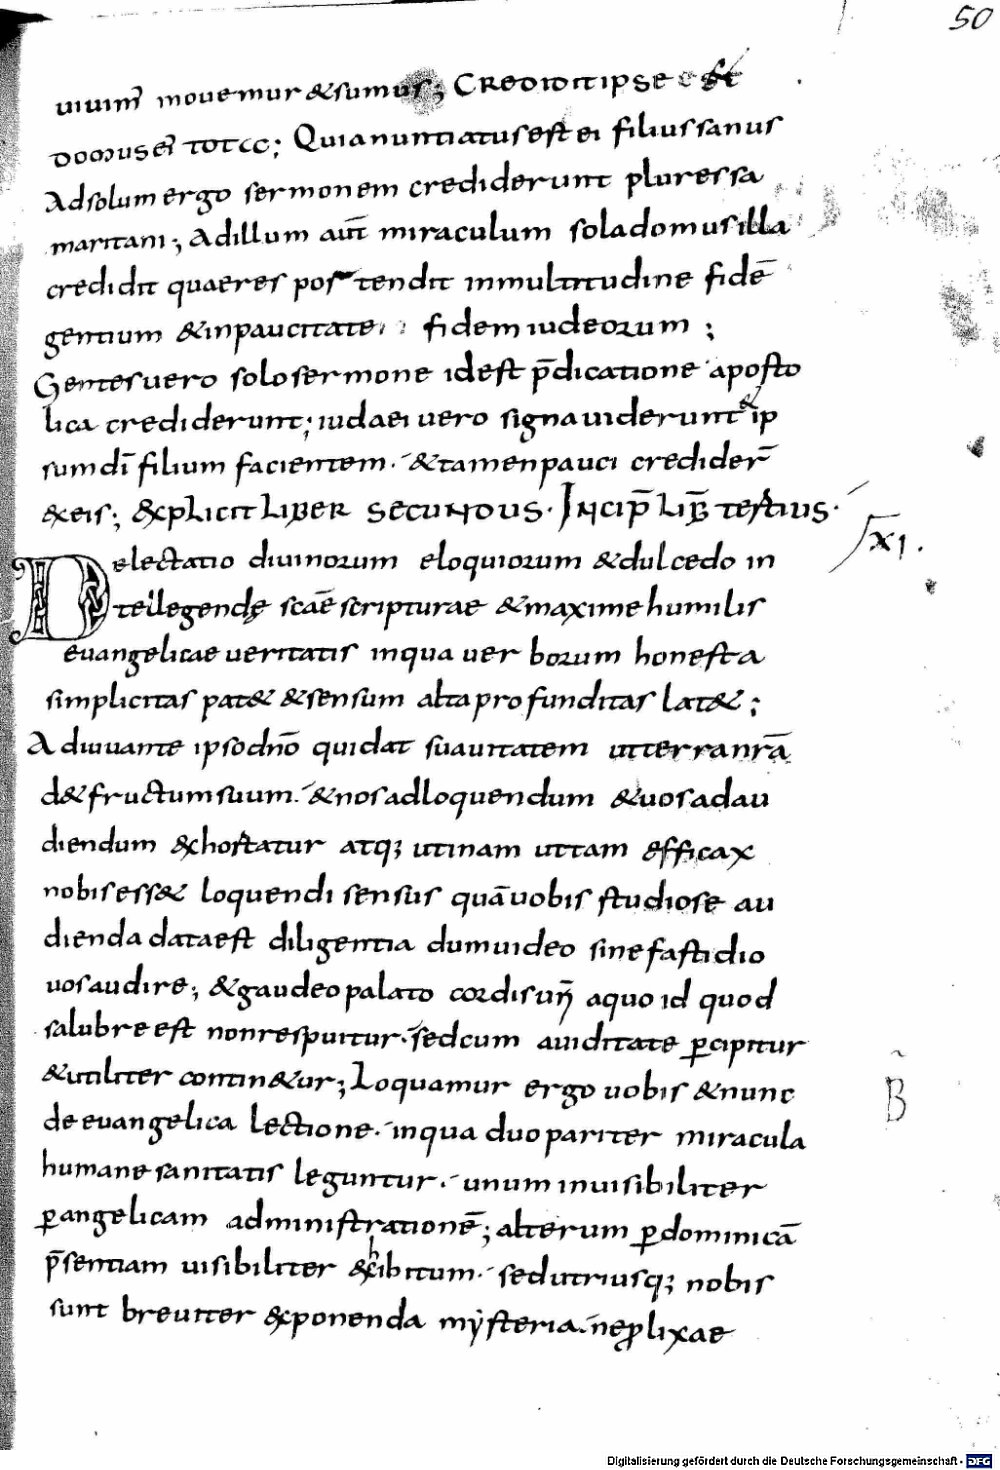 50
uiuim̄ mouemur &sumus; Credidit ipse &
domus ei tota; Quia nuntiatus est ei filius sanus
Ad solum ergo sermonem crediderunt plures sa
maritani; Ad illum aut̄ miraculum sola domus illa
credidit quae res postendit in multitudine fidē
gentium & in paucitate fidem iudeorum ;
Gentes uero solo sermone id est p̄dicatione aposto
lica crediderunt; iudaei uero signa uiderunt & ip
sum dī filium facientem. & tamen pauci credider̄
ex eis; Explicit liber secundus. Incip̄ lib̄ tertius.
xi.
Delectatio diuinorum eloquiorum & dulcedo in
tellegendę scāe scripturae & maxime humilis
euangelicae ueritatis in qua uerborum honesta
simplicitas pat& & sensum alta profunditas lat&;
Adiuuante ipso dnō qui dat suauitatem ut terra nrā
d& fructum suum. & nos ad loquendum & uos ad au
diendum exhortatur atq; utinam ut tam efficax
nobis ess& loquendi sensus quā uobis studiose au
dienda data est diligentia dum uideo sine fastidio
uos audire; & gaudeo palato cordis ur̄i a quo id quod
salubre est non respuitur. sed cum auiditate ꝑcipitur
& utiliter contin&ur; Loquamur ergo uobis & nunc
de euangelica lectione. in qua duo pariter miracula
B̃
humane sanitatis leguntur. unum inuisibiliter
ꝑ angelicam administrationē; alterum ꝑ dominicā
p̄sentiam uisibiliter exhibitum. sed utriusq; nobis
sunt breuiter exponenda mẏsteria. ne ꝓlixae
Digitalisierung gefördert durch die Deutsche Forschungsgemeinschaft - DFG